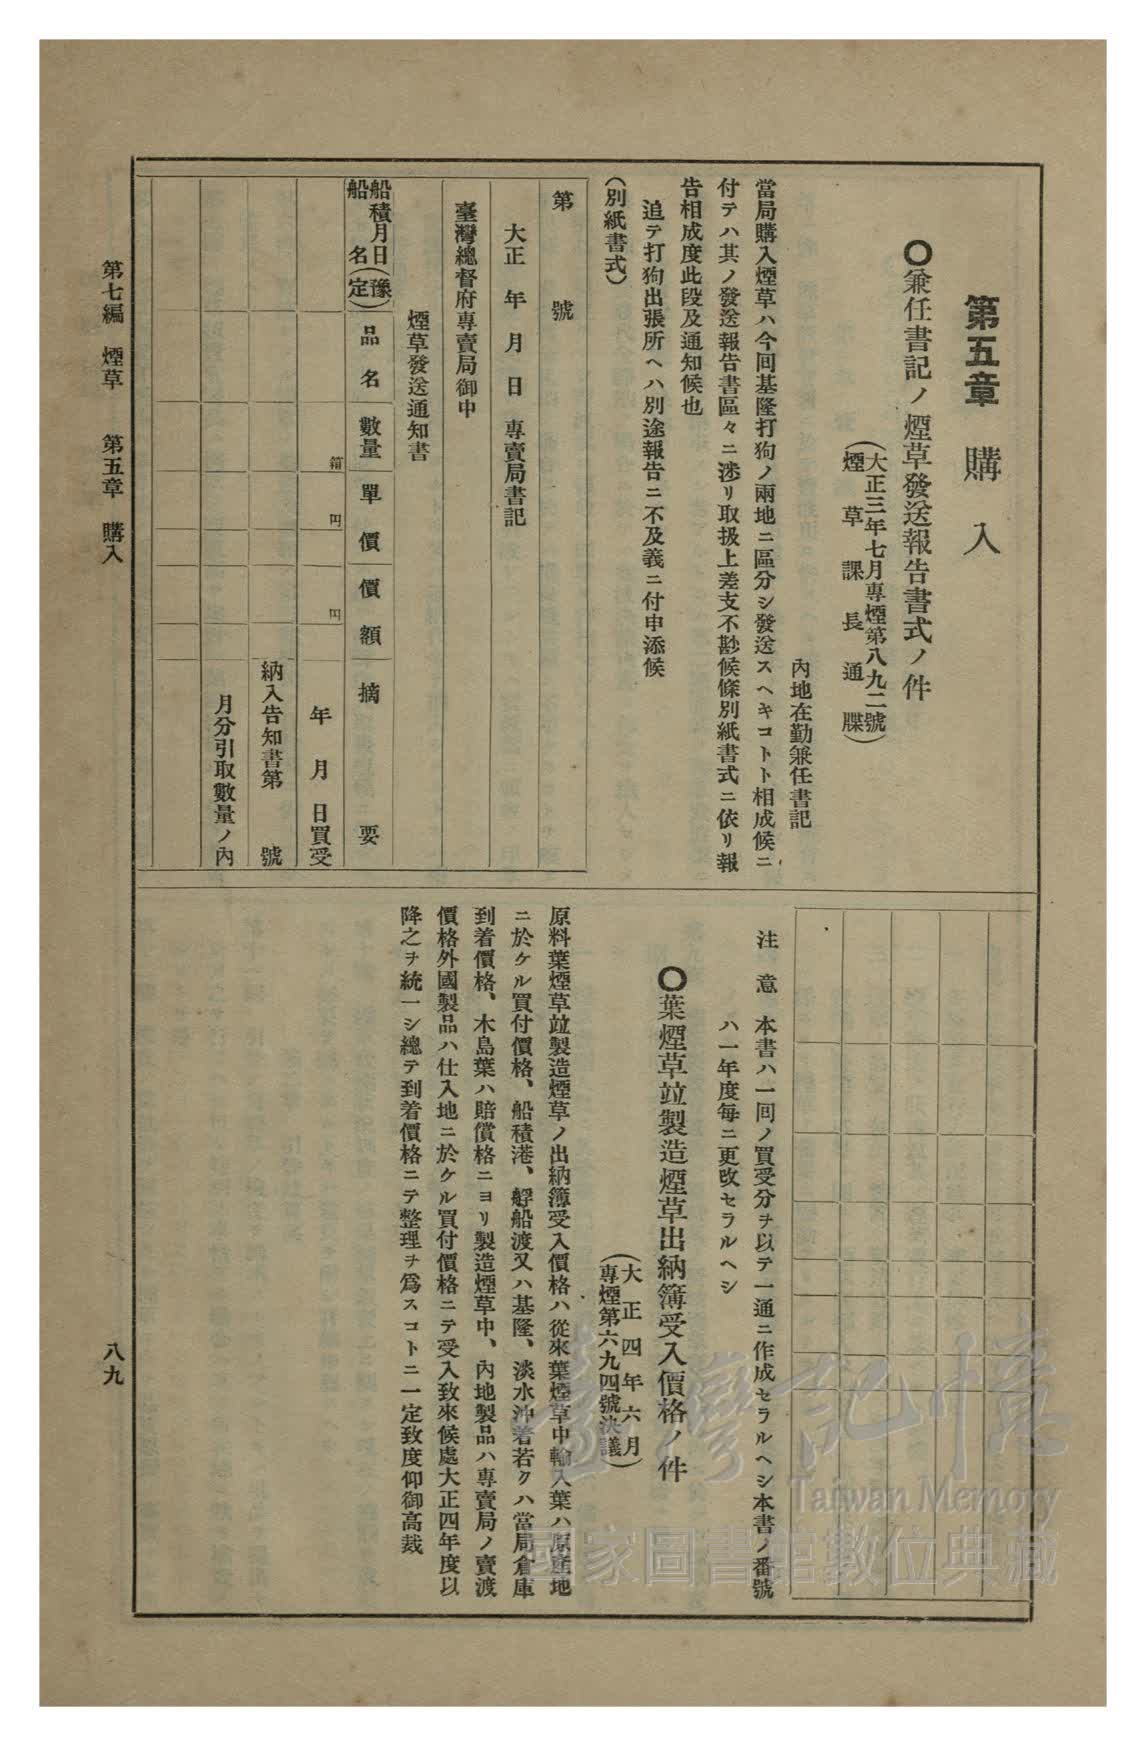 第五章　購入
〇兼任書記ノ煙草發送報告書式ノ件
（大正三年七月專煙第八九二號
煙草課長通牒）
內地在勤兼任書記
當局購入煙草ハ今回基隆打狗ノ兩地ニ區分シ發送スヘキコトト相成候ニ
付テハ其ノ發送報告書區々ニ涉リ取扱上差支不尠候條別紙書式ニ依リ報
告相成度此段及通知候也
追テ打狗出張所ヘハ別途報告ニ不及義ニ付申添候
（別紙書式）
第　號
大正　年　月　日　專賣局書記
臺灣總督府專賣局御中
煙草發送通知書
船積月日（豫定）
船名
品名
數量
單價
價額
摘要
箱
円
円
年　月　日買受
納入告知書第　號
月分引取數量ノ內
注意　本書ハ一回ノ買受分ヲ以テ一通ニ作成セラルヘシ本書ノ番號
ハ一年度每ニ更改セラルヘシ
〇葉煙草竝製造煙草出納簿受入價格ノ件
（大正四年六月
專煙第六九四號決議）
原料葉煙草竝製造煙草ノ出納簿受入價格ハ從來葉煙草中輸入葉ハ原產地
ニ於ケル買付價格、船積港、艀船渡又ハ基隆、淡水沖着若クハ當局倉庫
到着價格、本島葉ハ賠償格ニヨリ製造煙草中、內地製品ハ專賣局ノ賣渡
價格外國製品ハ仕入地ニ於ケル買付價格ニテ受入致來候處大正四年度以
降之ヲ統一シ總テ到着價格ニテ整理ヲ爲スコトニ一定致度仰御高裁
第七編　煙草　第五章　購入
八九
臺灣記憶
Taiwan Memory
國家圖書館數位典藏